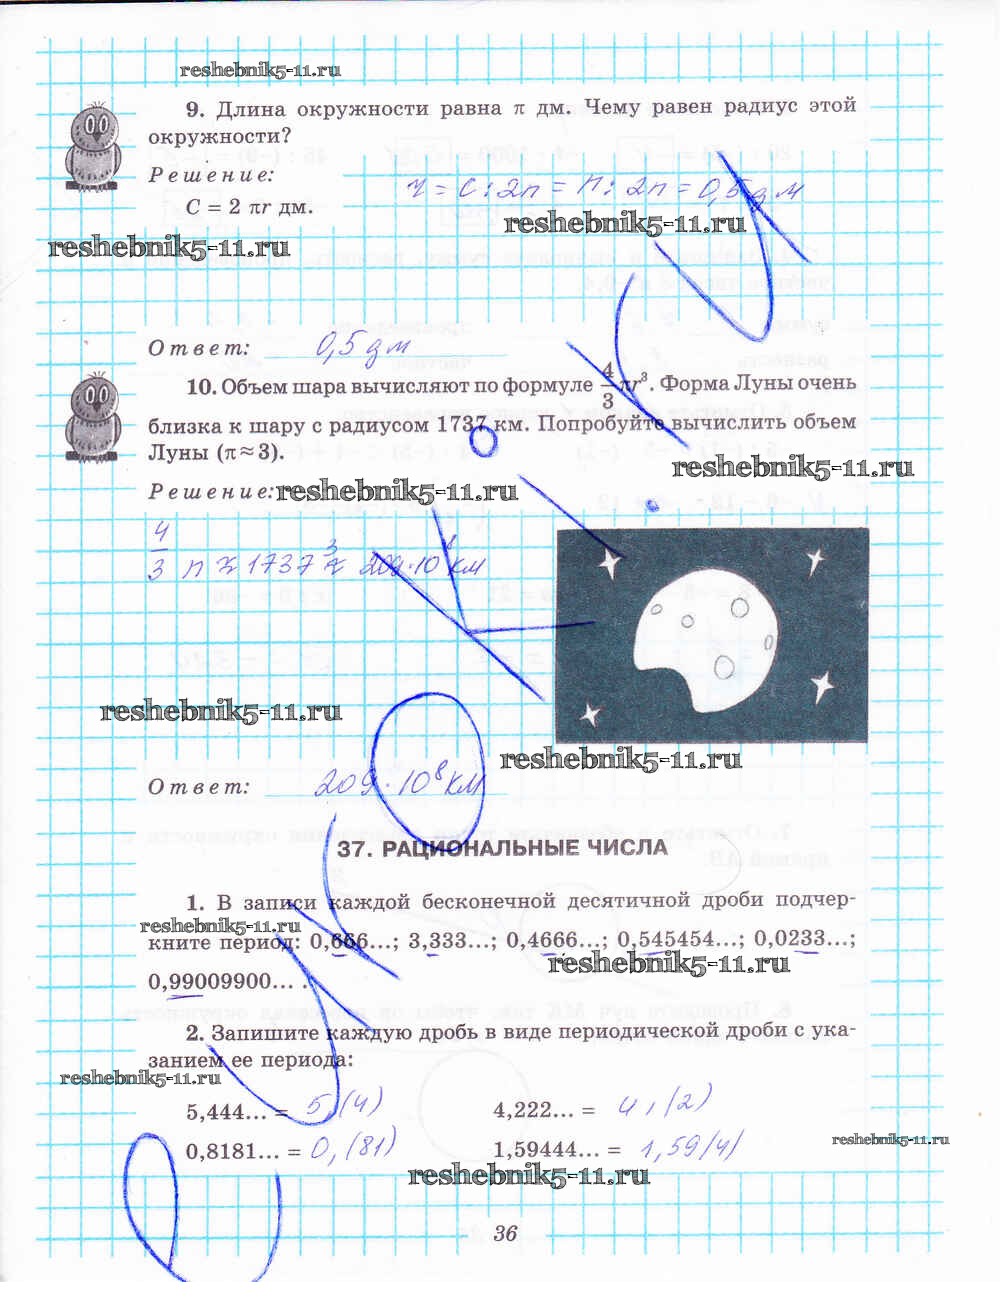 reshebnik5-11.ru
9. Длина окружности равна π дм. Чему равен радиус этой
окружности?
Решение:
r = C : 2π = π : 2π = 0,5 дм
C = 2 πr дм.
reshebnik5-11.ru
reshebnik5-11.ru
Ответ: 0,5 дм
10. Объем шара вычисляют по формуле 4/3 πr³. Форма Луны очень
близка к шару с радиусом 1737 км. Попробуйте вычислить объем
Луны (π≈3).
reshebnik5-11.ru
Решение:
reshebnik5-11.ru
4/3 π × 1737³ ≈ 209·10⁸ км
reshebnik5-11.ru
reshebnik5-11.ru
Ответ: 209·10⁸ км
37. РАЦИОНАЛЬНЫЕ ЧИСЛА
1. В записи каждой бесконечной десятичной дроби подчер-
reshebnik5-11.ru
кните период: 0,666...; 3,333...; 0,4666...; 0,545454...; 0,0233...;
reshebnik5-11.ru
0,99009900... .
2. Запишите каждую дробь в виде периодической дроби с ука-
занием ее периода:
reshebnik5-11.ru
5,444... = 5,(4) 4,222... = 4,(2)
reshebnik5-11.ru
0,8181... = 0,(81) 1,59444... = 1,59(4)
reshebnik5-11.ru
36